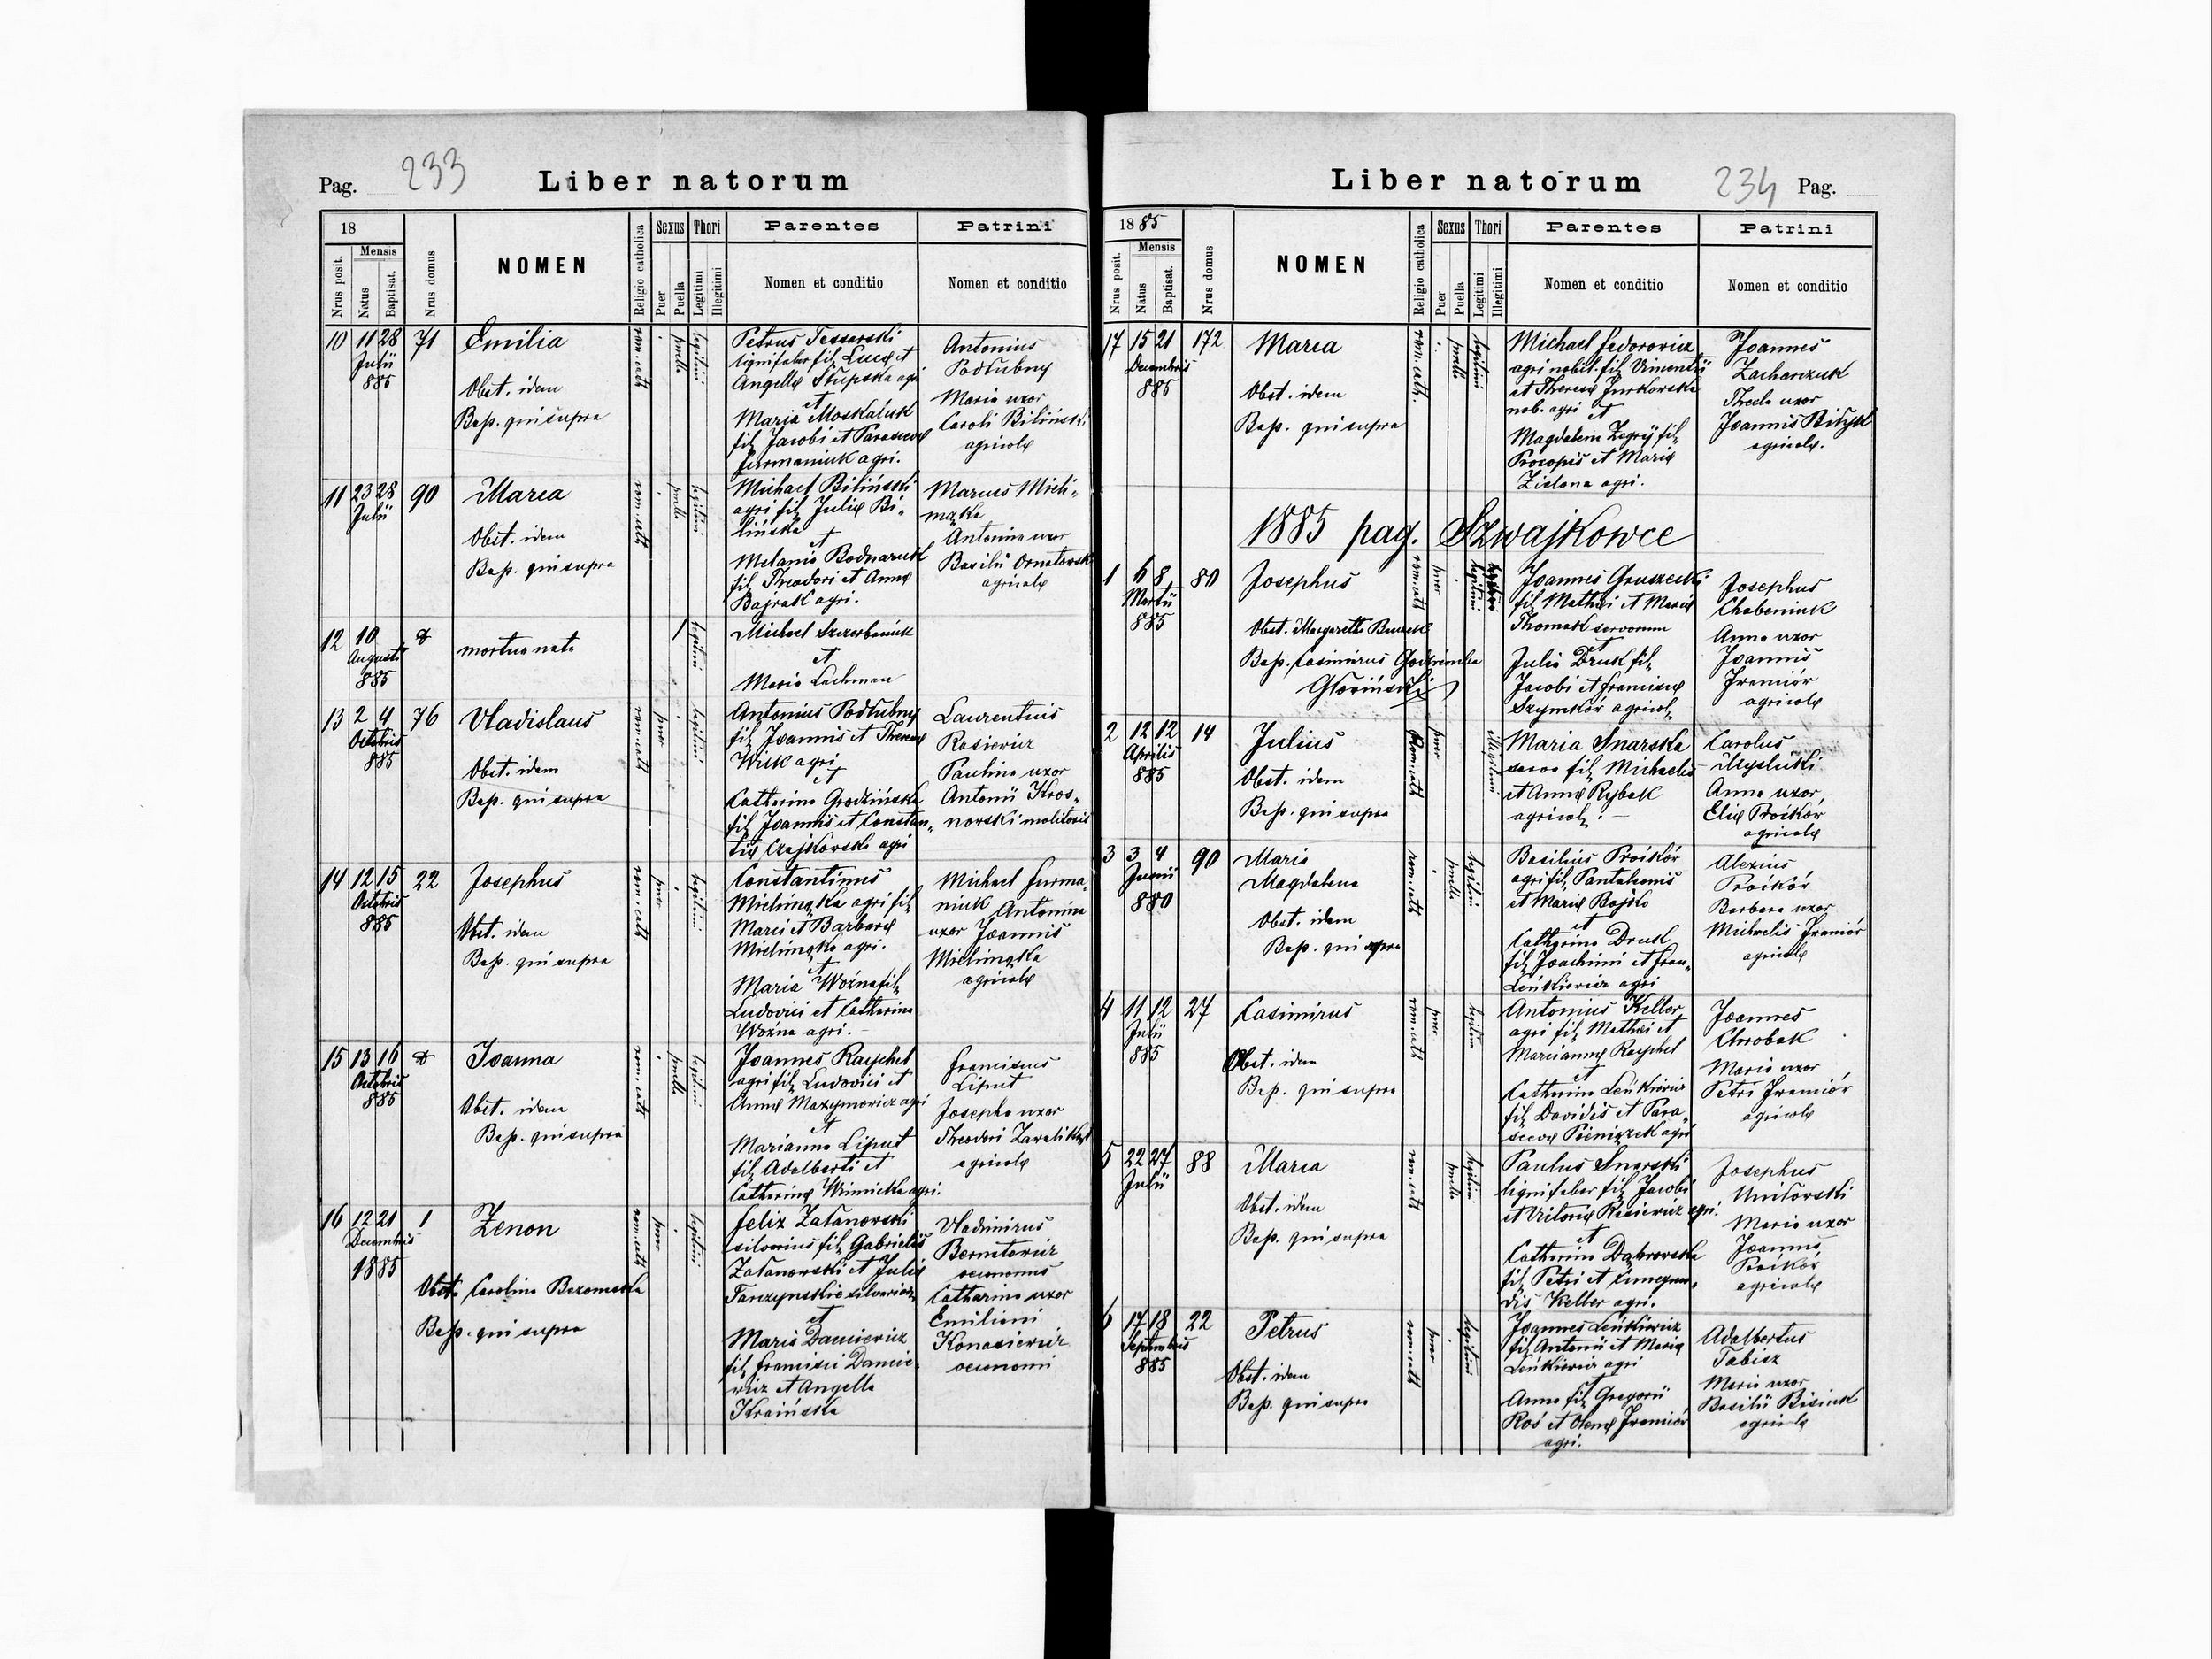 Pag. 233 Liber natorum
18
Nrus posit.
Mensis
Natus
Baptisat.
Nrus domus
NOMEN
Religio catholica
Sexus
Puer
Puella
Thori
Legitimi
Illegitimi
Parentes
Nomen et conditio
Patrini
Nomen et conditio
10 11 28 71 Emilia
Julii
885
Obst. idem
Bap. qui supra
rom. cath
puella
legitimi
Petrus Tessarski
lignifaber fil. Lucæ et
Angellæ Słupska agri
et
Maria Moskaluk
fil. Jacobi et Parascevæ
Furmaniuk agri.
Antonius
Podłubny
Maria uxor
Caroli Biliński
agricolæ
11 23 28 90 Maria
Julii
Obst. idem
Bap. qui supra
rom. cath
puella
legitimi
Michael Biliński
agri fil. Juliæ Bi-
lińska
et
Melania Bodnaruk
fil. Theodori et Annæ
Bajrak agri.
Marcus Mieli-
mąka
Antonina uxor
Basilii Ornatowsk
agricolæ
12 10 mortua nata
Augusti
885
legitimi
Michael Szczerbaniuk
et
Maria Lachman
13 2 4 76 Vladislaus
Octobris
885
Obst. idem
Bap. qui supra
rom. cath
puer
legitimi
Antonius Podłubny
fil. Joannis et Theresæ
Wilk agri
et
Catharina Grodzińska
fil. Joannis et Constan-
tiæ Czajkowska agri
Laurentius
Rasiewicz
Paulina uxor
Antonii Kros-
nowski molitoris
14 12 15 22 Josephus
Octobris
885
Obst. idem
Bap. qui supra
rom. cath
puer
legitimi
Constantinus
Mielimąka agri fil.
Marci et Barbaræ
Mielimąka agri.
et
Maria Woźna fil.
Ludovici et Catharina
Woźna agri.
Michael Furma-
niuk Antonina
uxor Joannis
Mielimąka
agricolæ
15 13 16 Joanna
Octobris
885
Obst. idem
Bap. qui supra
rom. cath
puella
legitimi
Joannes Raychel
agri fil. Ludovici et
Annæ Maxymowicz agri
et
Marianna Liput
fil. Adalberti et
Catharinæ Winnicka agri.
Franciscus
Liput
Josepha uxor
Theodori
agricolæ
16 12 21 1 Zenon
Decembris
1885
Obst. Carolina
Bap. qui supra
rom. cath
puer
legitimi
Felix Zatanowski
fil. Gabrielis
Zatanowski et Juliæ
et
Maria Daniewicz
fil. Francisci Danie-
wicz et Angella
Kraińska
Vladimirus
Bernatowicz
oeconomus
Catharina uxor
Emiliani
Konasiewicz
oeconomi
Liber natorum 234 Pag.
1885
Nrus posit.
Mensis
Natus
Baptisat.
Nrus domus
NOMEN
Religio catholica
Sexus
Puer
Puella
Thori
Legitimi
Illegitimi
Parentes
Nomen et conditio
Patrini
Nomen et conditio
17 15 21 172 Maria
Decembris
885
Obst. idem
Bap. qui supra
rom. cath.
puella
legitimi
Michael Fedorowicz
agri nobil. fil. Vincentii
et Theresæ Jurkowska
nob. agri et
Magdalena Zegrij fil.
Procopii et Mariæ
Zielona agri.
Joannes
Zacharczuk
Thecla uxor
Joannis Biłyk
agricolæ.
1885 pag. Szwajkowce
1 6 8 80 Josephus
Martii
885
Obst. Margaretha
Bap. Casimirus Godziemba
Głowiński
rom. cath
puer
legitimi
Joannes Gruszecki
fil. Mathæi et Mariæ
Thomak servorum
et
Julia Druk fil.
Jacobi et Franciscæ
Szymków agricol.
Josephus
Chabeniuk
Anna uxor
Joannis
Jremiów
agricolæ
2 12 12 14 Julius
Aprilis
885
Obst. idem
Bap. qui supra
Rom. cath
puer
illegitimi
Maria Snarska
serva fil. Michaelis
et Annæ Rybak
agricol.
Carolus
Mysłucki
Anna uxor
Eliæ Proików
agricolæ
3 3 4 90 Maria
Junii Magdalena
880
Obst. idem
Bap. qui supra
rom. cath
puella
legitimi
Basilius Proików
agri fil. Pantaleonis
et Mariæ Bojko
et
Catharina Druk
fil. Joachimi et Fran.
Leńkiewicz agri
Alexius
Proików
Barbara uxor
Michaelis Jremiów
agricolæ
4 11 12 27 Casimirus
Julii
885
Obst. idem
Bap. qui supra
rom. cath
puer
legitimi
Antonius Keller
agri fil. Mathæi et
Mariannæ Raychel
et
Catharina Leńkiewicz
fil. Davidis et Para-
scevæ Pieniążek agri
Joannes
Chrobak
Maria uxor
Petri Jremiów
agricolæ
5 22 27 88 Maria
Julii
Obst. idem
Bap. qui supra
rom. cath
puella
legitimi
Paulus Snarski
lignifaber fil. Jacobi
et Victoriæ Rasiewicz agri.
et
Catharina Dąbrowska
fil. Petri et Cunegun-
dis Keller agri.
Josephus
Maria uxor
Joannis
Proików
agricolæ
6 17 18 22 Petrus
Septembris
885
Obst. idem
Bap. qui supra
rom. cath
puer
legitimi
Joannes Leńkiewicz
fil. Antonii et Mariæ
Leńkiewicz agri
et
Anna fil. Gregorii
Roś et Olenæ Jremiów
agri.
Adalbertus
Tabisz
Maria uxor
Basilii Bisiuk
agricolæ